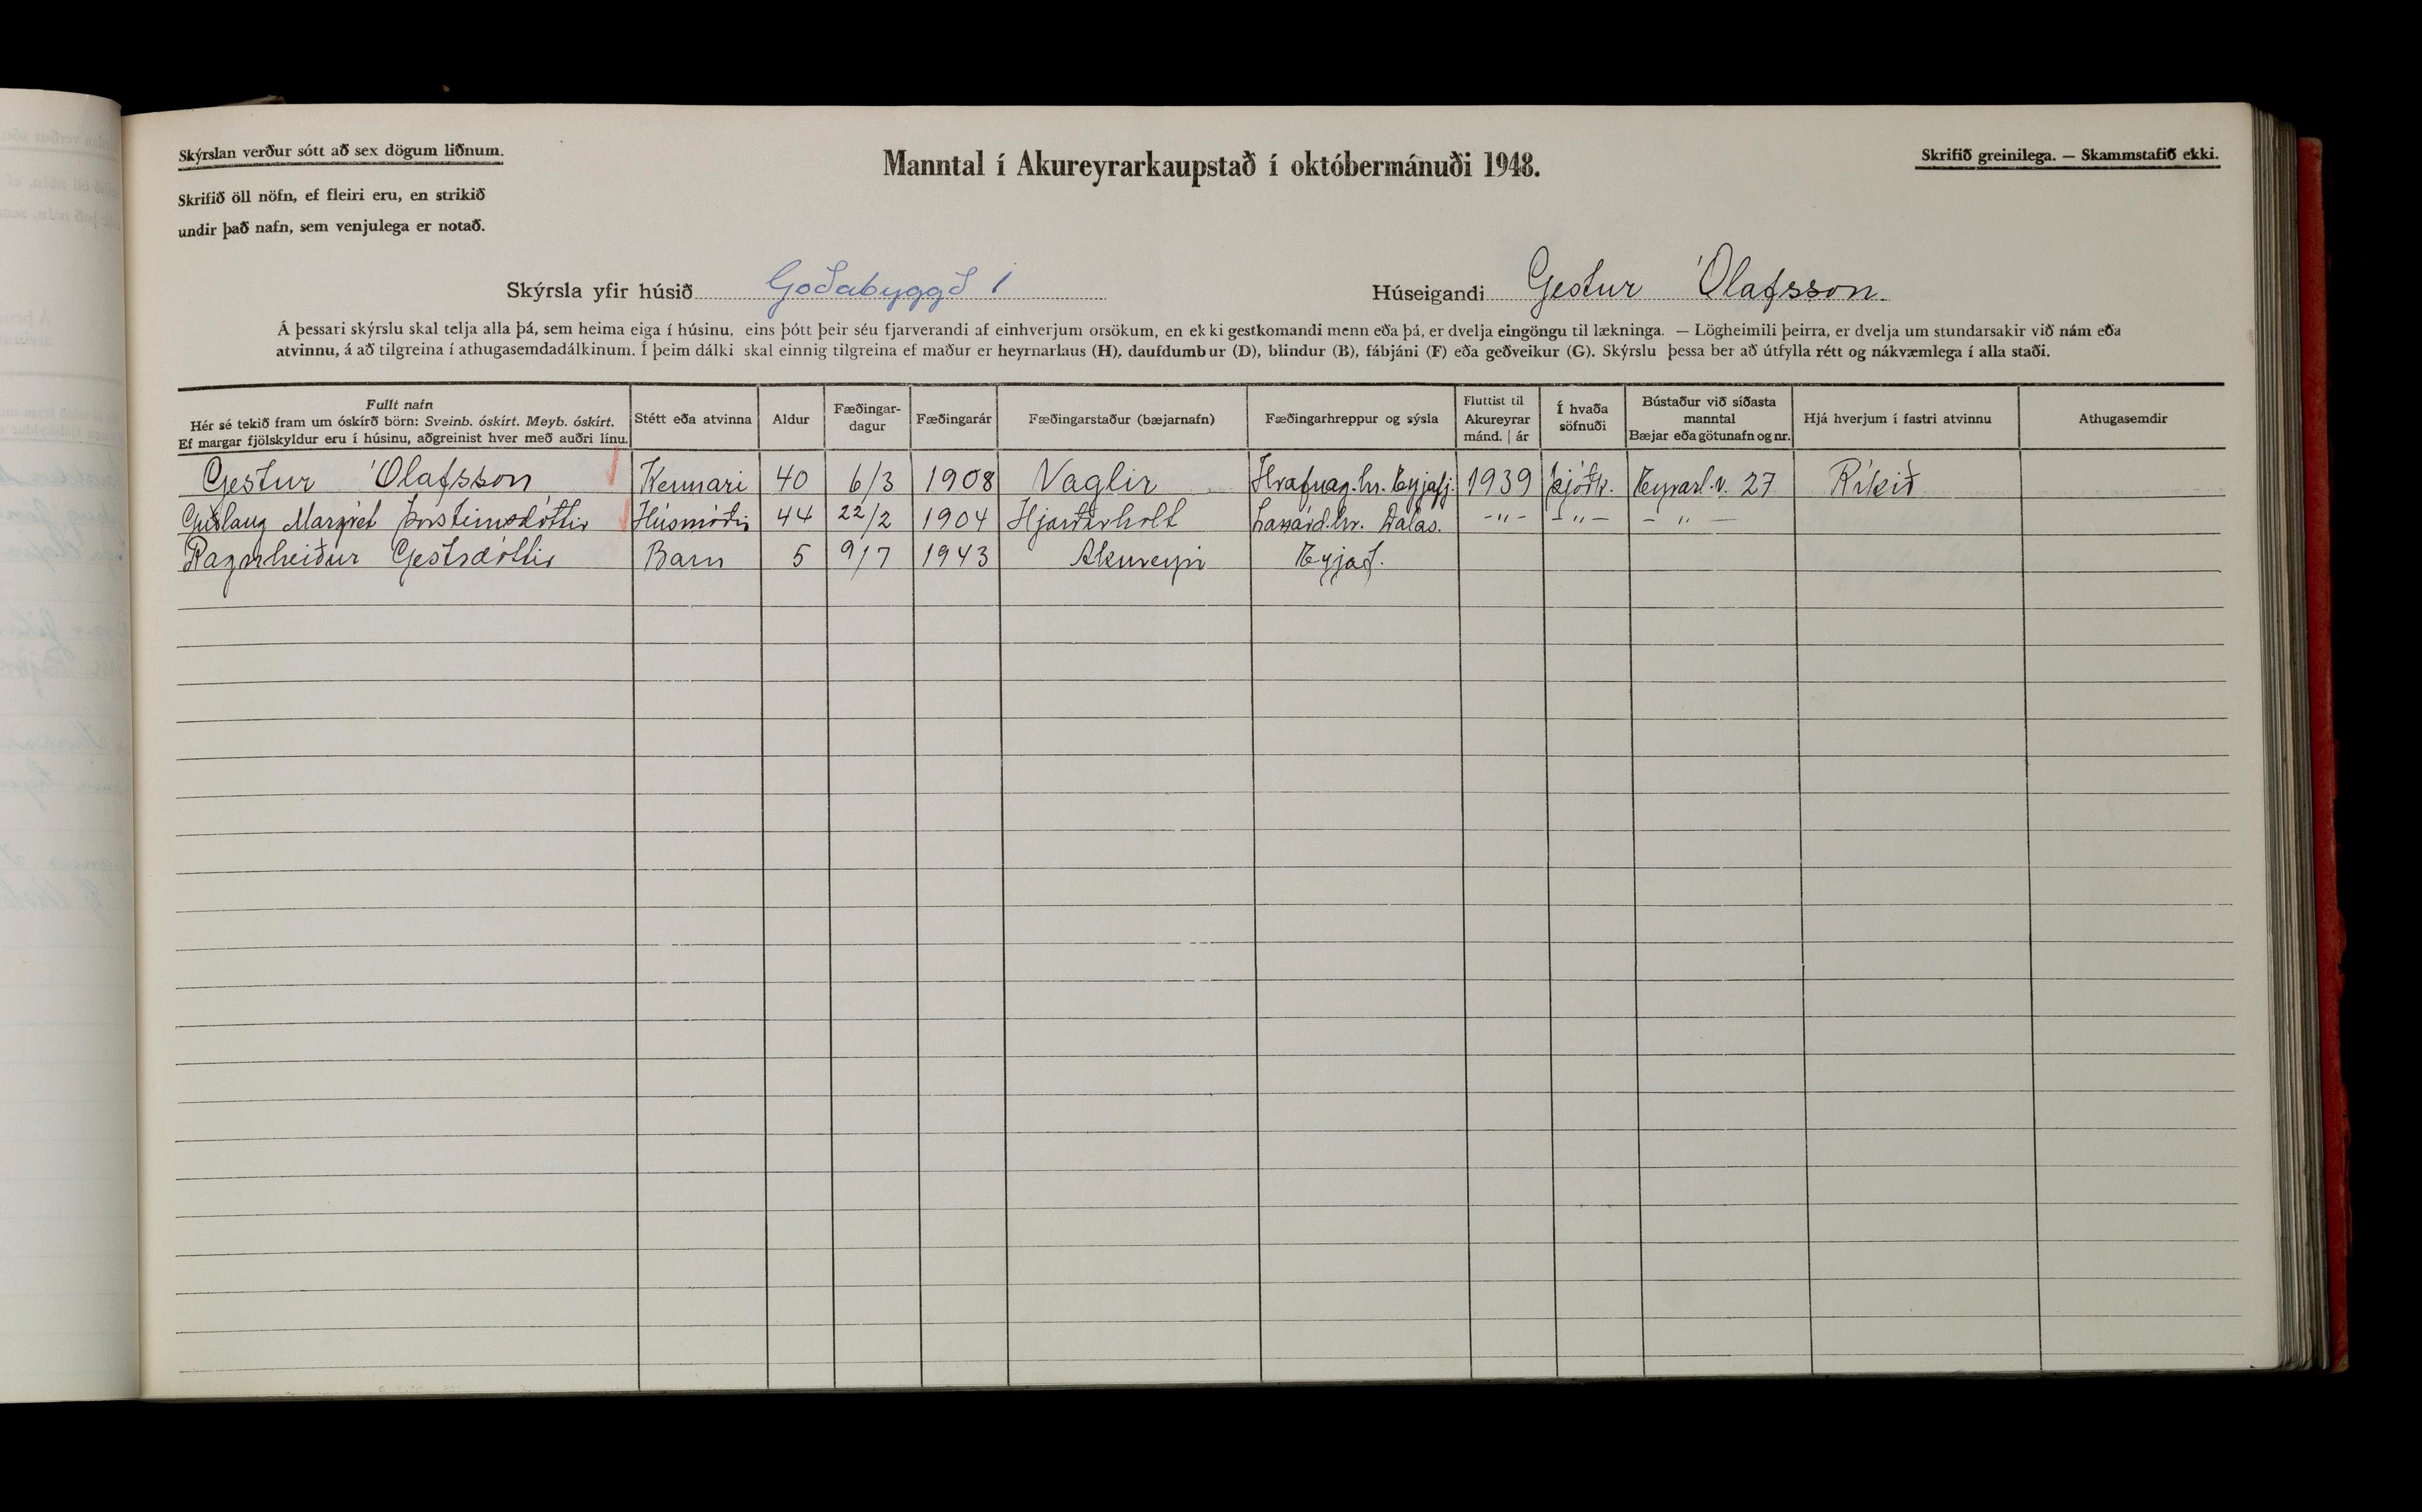 Skýrslan verður sótt að sex dögum liðnum.
Manntal í Akureyrarkaupstað í októbermánuði 1948.
Skrifið greinilega. — Skammstafið ekki.
Skrifið öll nöfn, ef fleiri eru, en strikið
undir það nafn, sem venjulega er notað.
Skýrsla yfir húsið Goðabyggð 1 Húseigandi Gestur Ólafsson.
Á þessari skýrslu skal telja alla þá, sem heima eiga í húsinu, eins þótt þeir séu fjarverandi af einhverjum orsökum, en ekki gestkomandi menn eða þá, er dvelja eingöngu til lækninga. — Lögheimili þeirra, er dvelja um stundarsakir við nám eða
atvinnu, á að tilgreina í athugasemdadálkinum. Í þeim dálki skal einnig tilgreina ef maður er heyrnarlaus (H), daufdumbur (D), blindur (B), fábjáni (F) eða geðveikur (G). Skýrslu þessa ber að útfylla rétt og nákvæmlega í alla staði.
Fullt nafn
Hér sé tekið fram um óskírð börn: Sveinb. óskírt. Meyb. óskírt.
Ef margar fjölskyldur eru í húsinu, aðgreinist hver með auðri línu.
Stétt eða atvinna
Aldur
Fæðingar-
dagur
Fæðingarár
Fæðingarstaður (bæjarnafn)
Fæðingarhreppur og sýsla
Fluttist til
Akureyrar
mánd. | ár
Í hvaða
söfnuði
Bústaður við síðasta
manntal
Bæjar eða götunafn og nr.
Hjá hverjum í fastri atvinnu
Athugasemdir
Gestur Ólafsson Kennari 40 6/3 1908 Vaglir Hrafnag.hr. Eyjafj. 1939 Þjóðk. Eyrarl.v. 27 Ríkið
Guðlaug Margrét Þorsteinsdóttir Húsmóðir 44 22/2 1904 Hjarðarholt Laxárd.hr. Dalas. -"- -"- -"-
Ragnheiður Gestsdóttir Barn 5 9/7 1943 Akureyri Eyjaf.